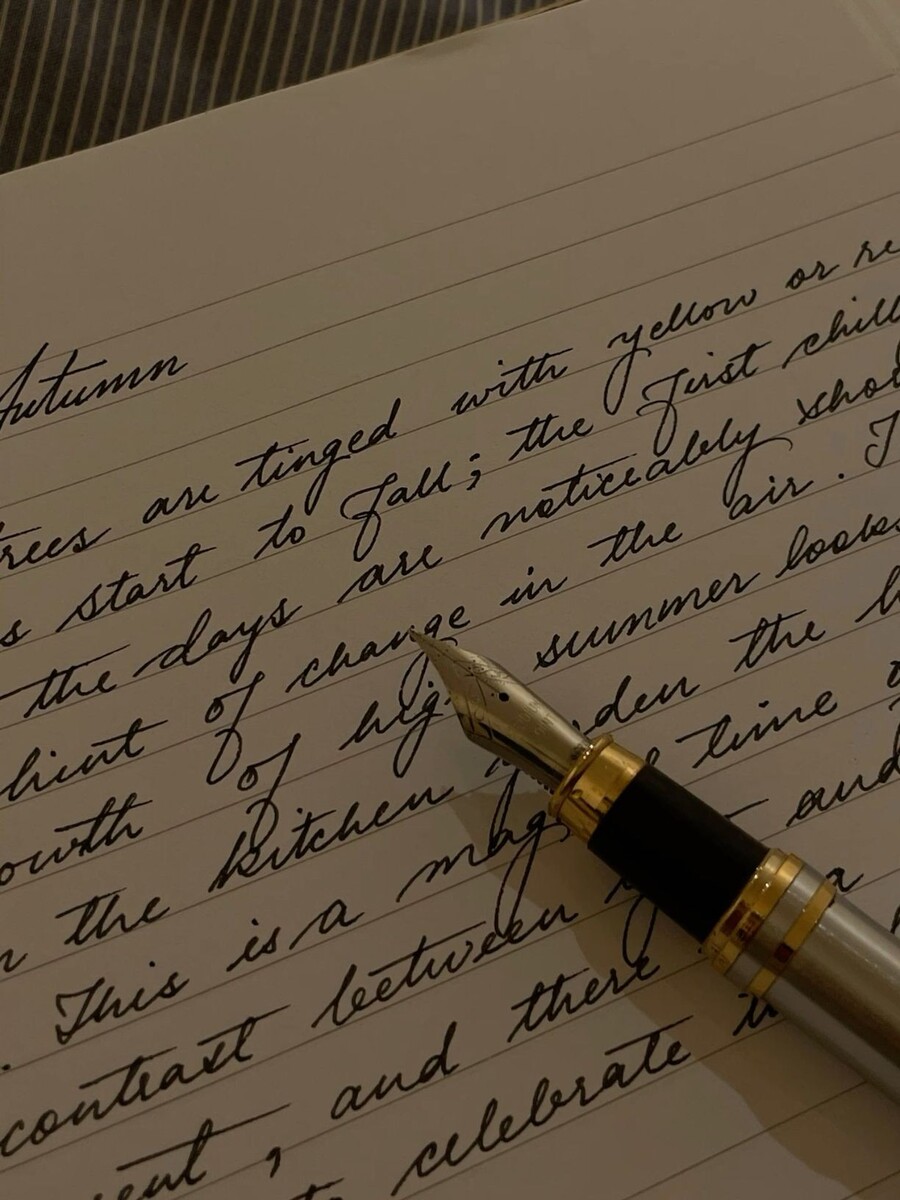 Autumn
trees are tinged with yellow or re
s start to fall; the first chill
the days are noticeably shor
hint of change in the air. T
owth of high summer looks
n the kitchen the
. This is a time
contrast between and
ent, and there a
celebrate